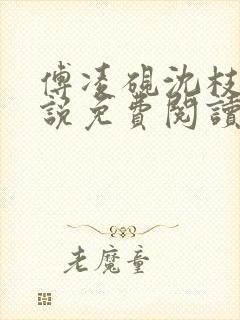 傅凌砚沈枝
說免費閱讀
老魔童